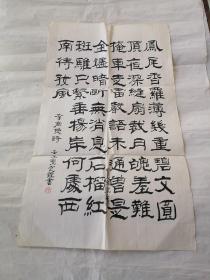 鳳尾香羅薄幾重碧文圓
頂夜深縫扇裁月魄羞難
掩車走雷聲語未通曾是
金燼暗斷無消息石榴紅
斑騅只繫垂楊岸何處西
南待好風
李商隱詩
書